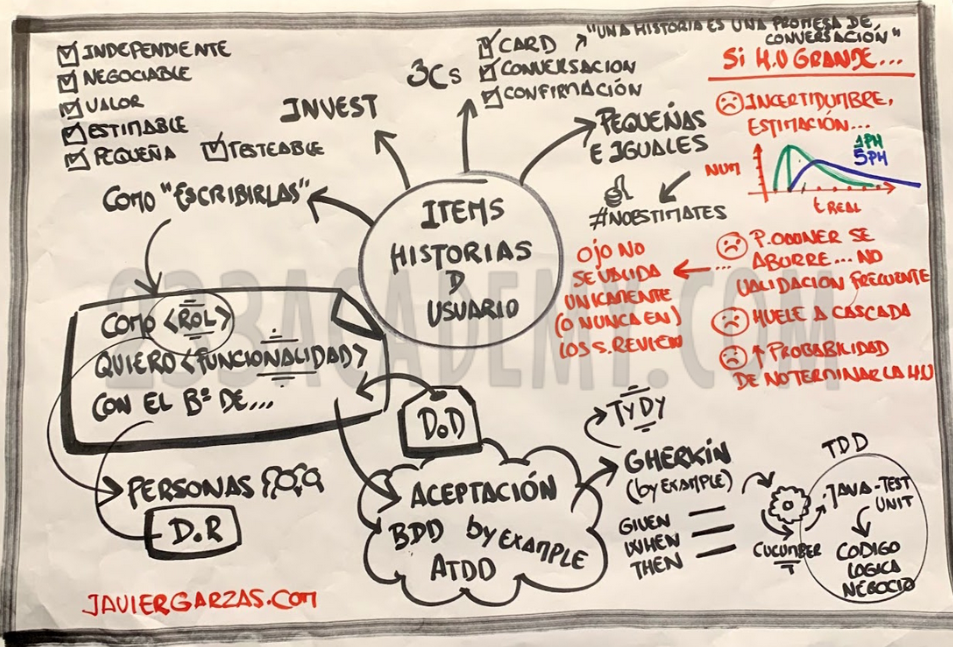 INDEPENDIENTE
NEGOCIABLE
VALOR
ESTIMABLE
PEQUEÑA
TESTEABLE
INVEST
3Cs
CARD
CONVERSACION
CONFIRMACIÓN
"UNA HISTORIA ES UNA PROMESA DE
CONVERSACIÓN"
Si H.U GRANDE...
INCERTIDUMBRE,
ESTIMACIÓN...
NUM
1PH
5PH
t REAL
PEQUEÑAS
E IGUALES
#NOESTIMATES
COMO "ESCRIBIRLAS"
ITEMS
HISTORIAS
D
USUARIO
OJO NO
SE VALIDA
UNICAMENTE
(O NUNCA EN)
LOS S. REVIEW
P. OWNER SE
ABURRE... NO
VALIDACION FRECUENTE
HUELE A CASCADA
↑ PROBABILIDAD
DE NO TERMINAR LA H.U
COMO <ROL>
QUIERO <FUNCIONALIDAD>
CON EL Bº DE...
DoD
PERSONAS
D.R
ACEPTACIÓN
BDD by EXAMPLE
ATDD
TyDy
GHERKÍN
(by EXAMPLE)
GIVEN
WHEN
THEN
CUCUMBER
TDD
JAVA-TEST
UNIT
CODIGO
LOGICA
NEGOCIO
JAVIERGARZAS.COM
233ACADEMY.COM